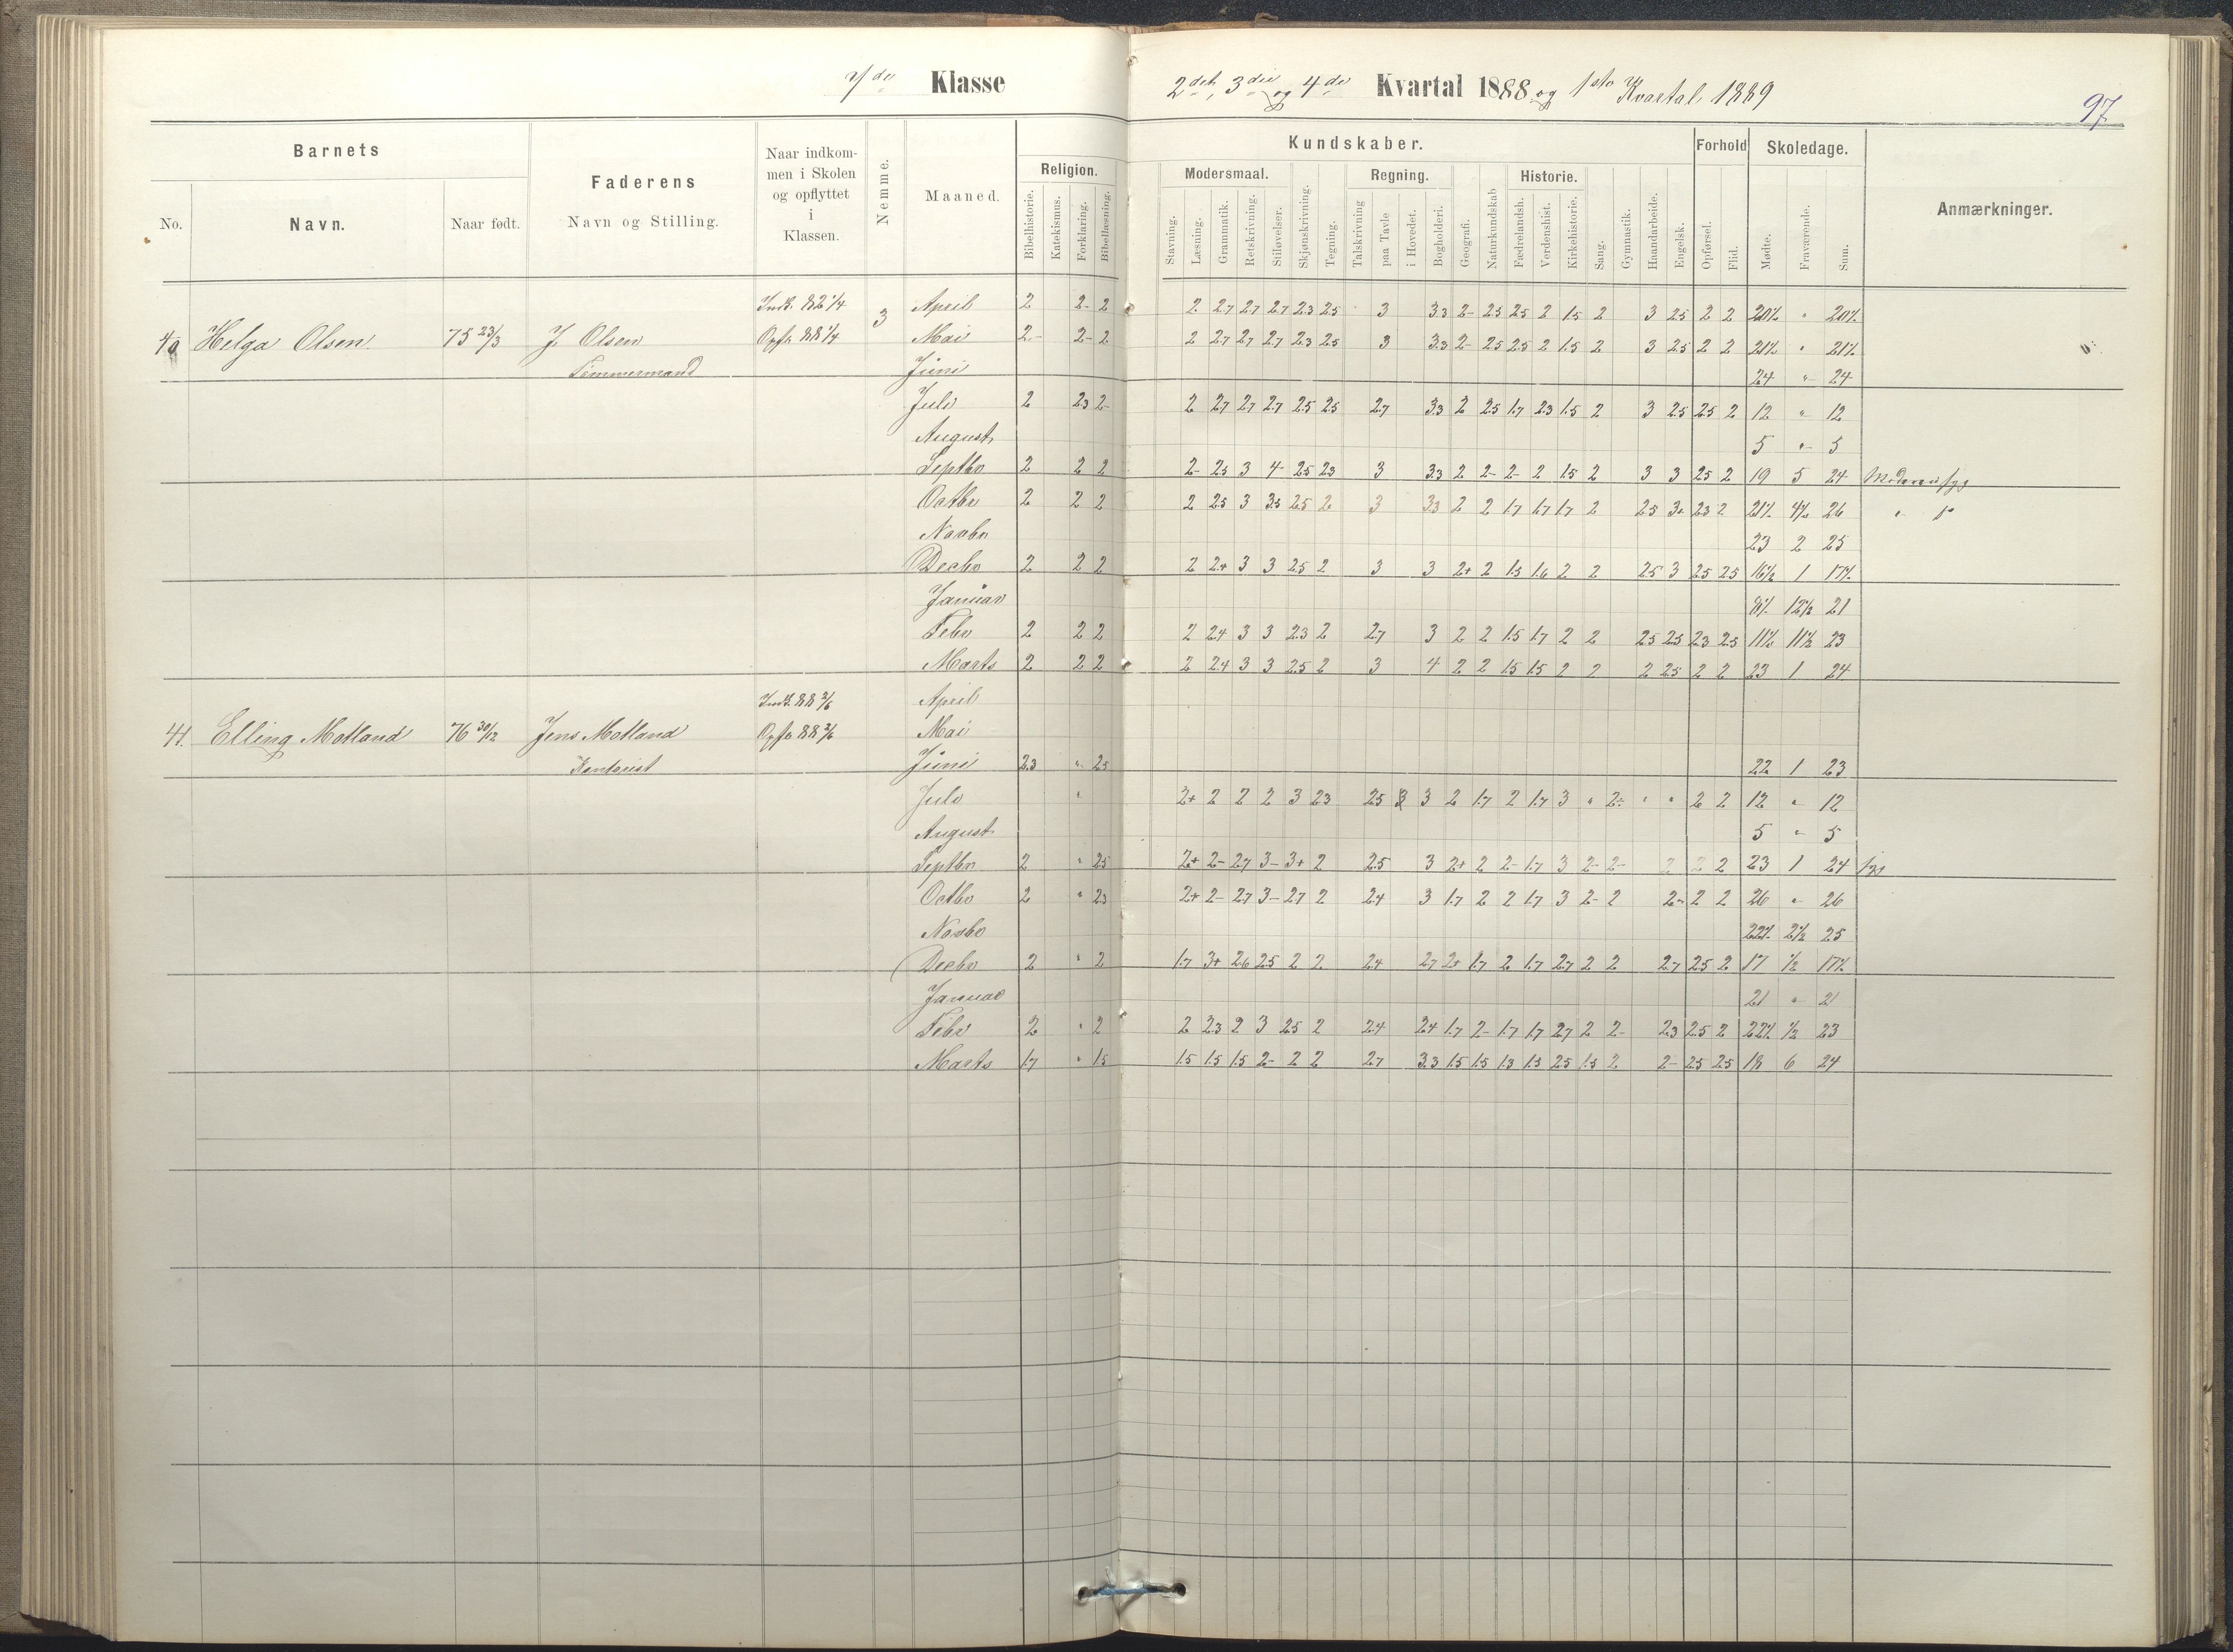 7de Klasse
2det, 3die og 4de Kvartal 1888 og 1ste Kvartal 1889
97
Barnets
Faderens
Navn og Stilling.
Naar indkom-
men i Skolen
og opflyttet
i
Klassen.
Nemme.
Maaned.
Kundskaber.
Forhold
Skoledage.
Anmærkninger.
No.
Navn.
Naar født.
Religion.
Modersmaal.
Regning.
Historie.
Bibelhistorie.
Katekismus.
Forklaring.
Bibellæsning.
Stavning.
Læsning.
Grammatik.
Retskrivning.
Stiløvelser.
Skjønskrivning.
Tegning.
Talskrivning
paa Tavle
i Hovedet.
Bogholderi.
Geografi.
Naturkundskab
Fædrelandsh.
Verdenshist.
Kirkehistorie.
Sang.
Gymnastik.
Haandarbeide.
Engelsk.
Opførsel.
Flid.
Mødte.
Fraværende.
Sum.
Indk. 82 1/4 3 April 2 2- 2 2 2.7 2.7 2.7 2.3 2.5 3 3.3 2- 2.5 2.5 2 1.5 2 3 2.5 2 2 20½ " 20½
40 Helga Olsen. 75 23/3 J. Olsen Opfl. 88 1/4 Mai 2- 2- 2 2 2.7 2.7 2.7 2.3 2.5 3 3.3 2- 2.5 2.5 2 1.5 2 3 2.5 2 2 21½ " 21½
Tømmermand Juni 24 " 24
Juli 2 2.3 2- 2 2.7 2.7 2.7 2.5 2.5 2.7 3.3 2 2.5 1.7 2.3 1.5 2 3 2.5 2.5 2 12 " 12
August 5 " 5
Septbr 2 2 2 2- 2.5 3 4- 2.5 2.3 3 3.3 2 2- 2- 2 1.5 2 3 3 2.5 2 19 5 24 Moderen syg
Octbr 2 2 2 2 2.5 3 3.5 2.5 2 3 3.3 2 2 1.7 1.7 1.7 2 2.5 3+ 2.3 2 21½ 4½ 26
Novbr 23 2 25
Decbr 2 2 2 2 2.4 3 3 2.5 2 3 3 2+ 2 1.5 1.6 2 2 2.5 3 2.5 2.5 16½ 1 17½
Januar 8½ 12½ 21
Febr 2 2 2 2 2.4 3 3 2.3 2 2.7 3 2 2 1.5 1.7 2 2 2.5 2.5 2.3 2.5 11½ 11½ 23
Marts 2 2 2 2 2.4 3 3 2.5 2 3 4 2 2 1.5 1.5 2 2 2 2.5 2 2 23 1 24
Indk. 88 2/6 April
41. Elling Motland 76 30/12 Jens Motland Opfl. 88 2/6 Mai
Kontorist Juni 2.3 " 2.5 22 1 23
Juli " 2+ 2 2 2 3 2.3 2.5 3 2 1.7 2 1.7 3 " 2- " " 2 2 12 " 12
August 5 " 5
Septbr 2 " 2.5 2+ 2- 2.7 3- 3+ 2 2.5 3 2+ 2 2- 1.7 3 2- 2- 2 2 2 23 1 24 syg
Octbr 2 " 2.3 2+ 2- 2.7 3- 2.7 2 2.4 3 1.7 2 2 1.7 3 2- 2 2- 2 2 26 " 26
Novbr 22½ 2½ 25
Decbr 2 " 2 1.7 3+ 2.6 2.5 2 2 2.4 2.7 2+ 1.7 2 1.7 2.7 2 2 2.7 2.5 2 17 ½ 17½
Januar 21 " 21
Febr 2 " 2 2 2.3 2 3 2.5 2 2.4 2.4 1.7 2- 1.7 1.7 2.7 2 2- 2.3 2.5 2 22½ ½ 23
Marts 1.7 " 1.5 1.5 1.5 1.5 2- 2 2 2.7 3.3 1.5 1.5 1.3 1.5 2.5 1.5 2 2- 2.5 2.5 18 6 24